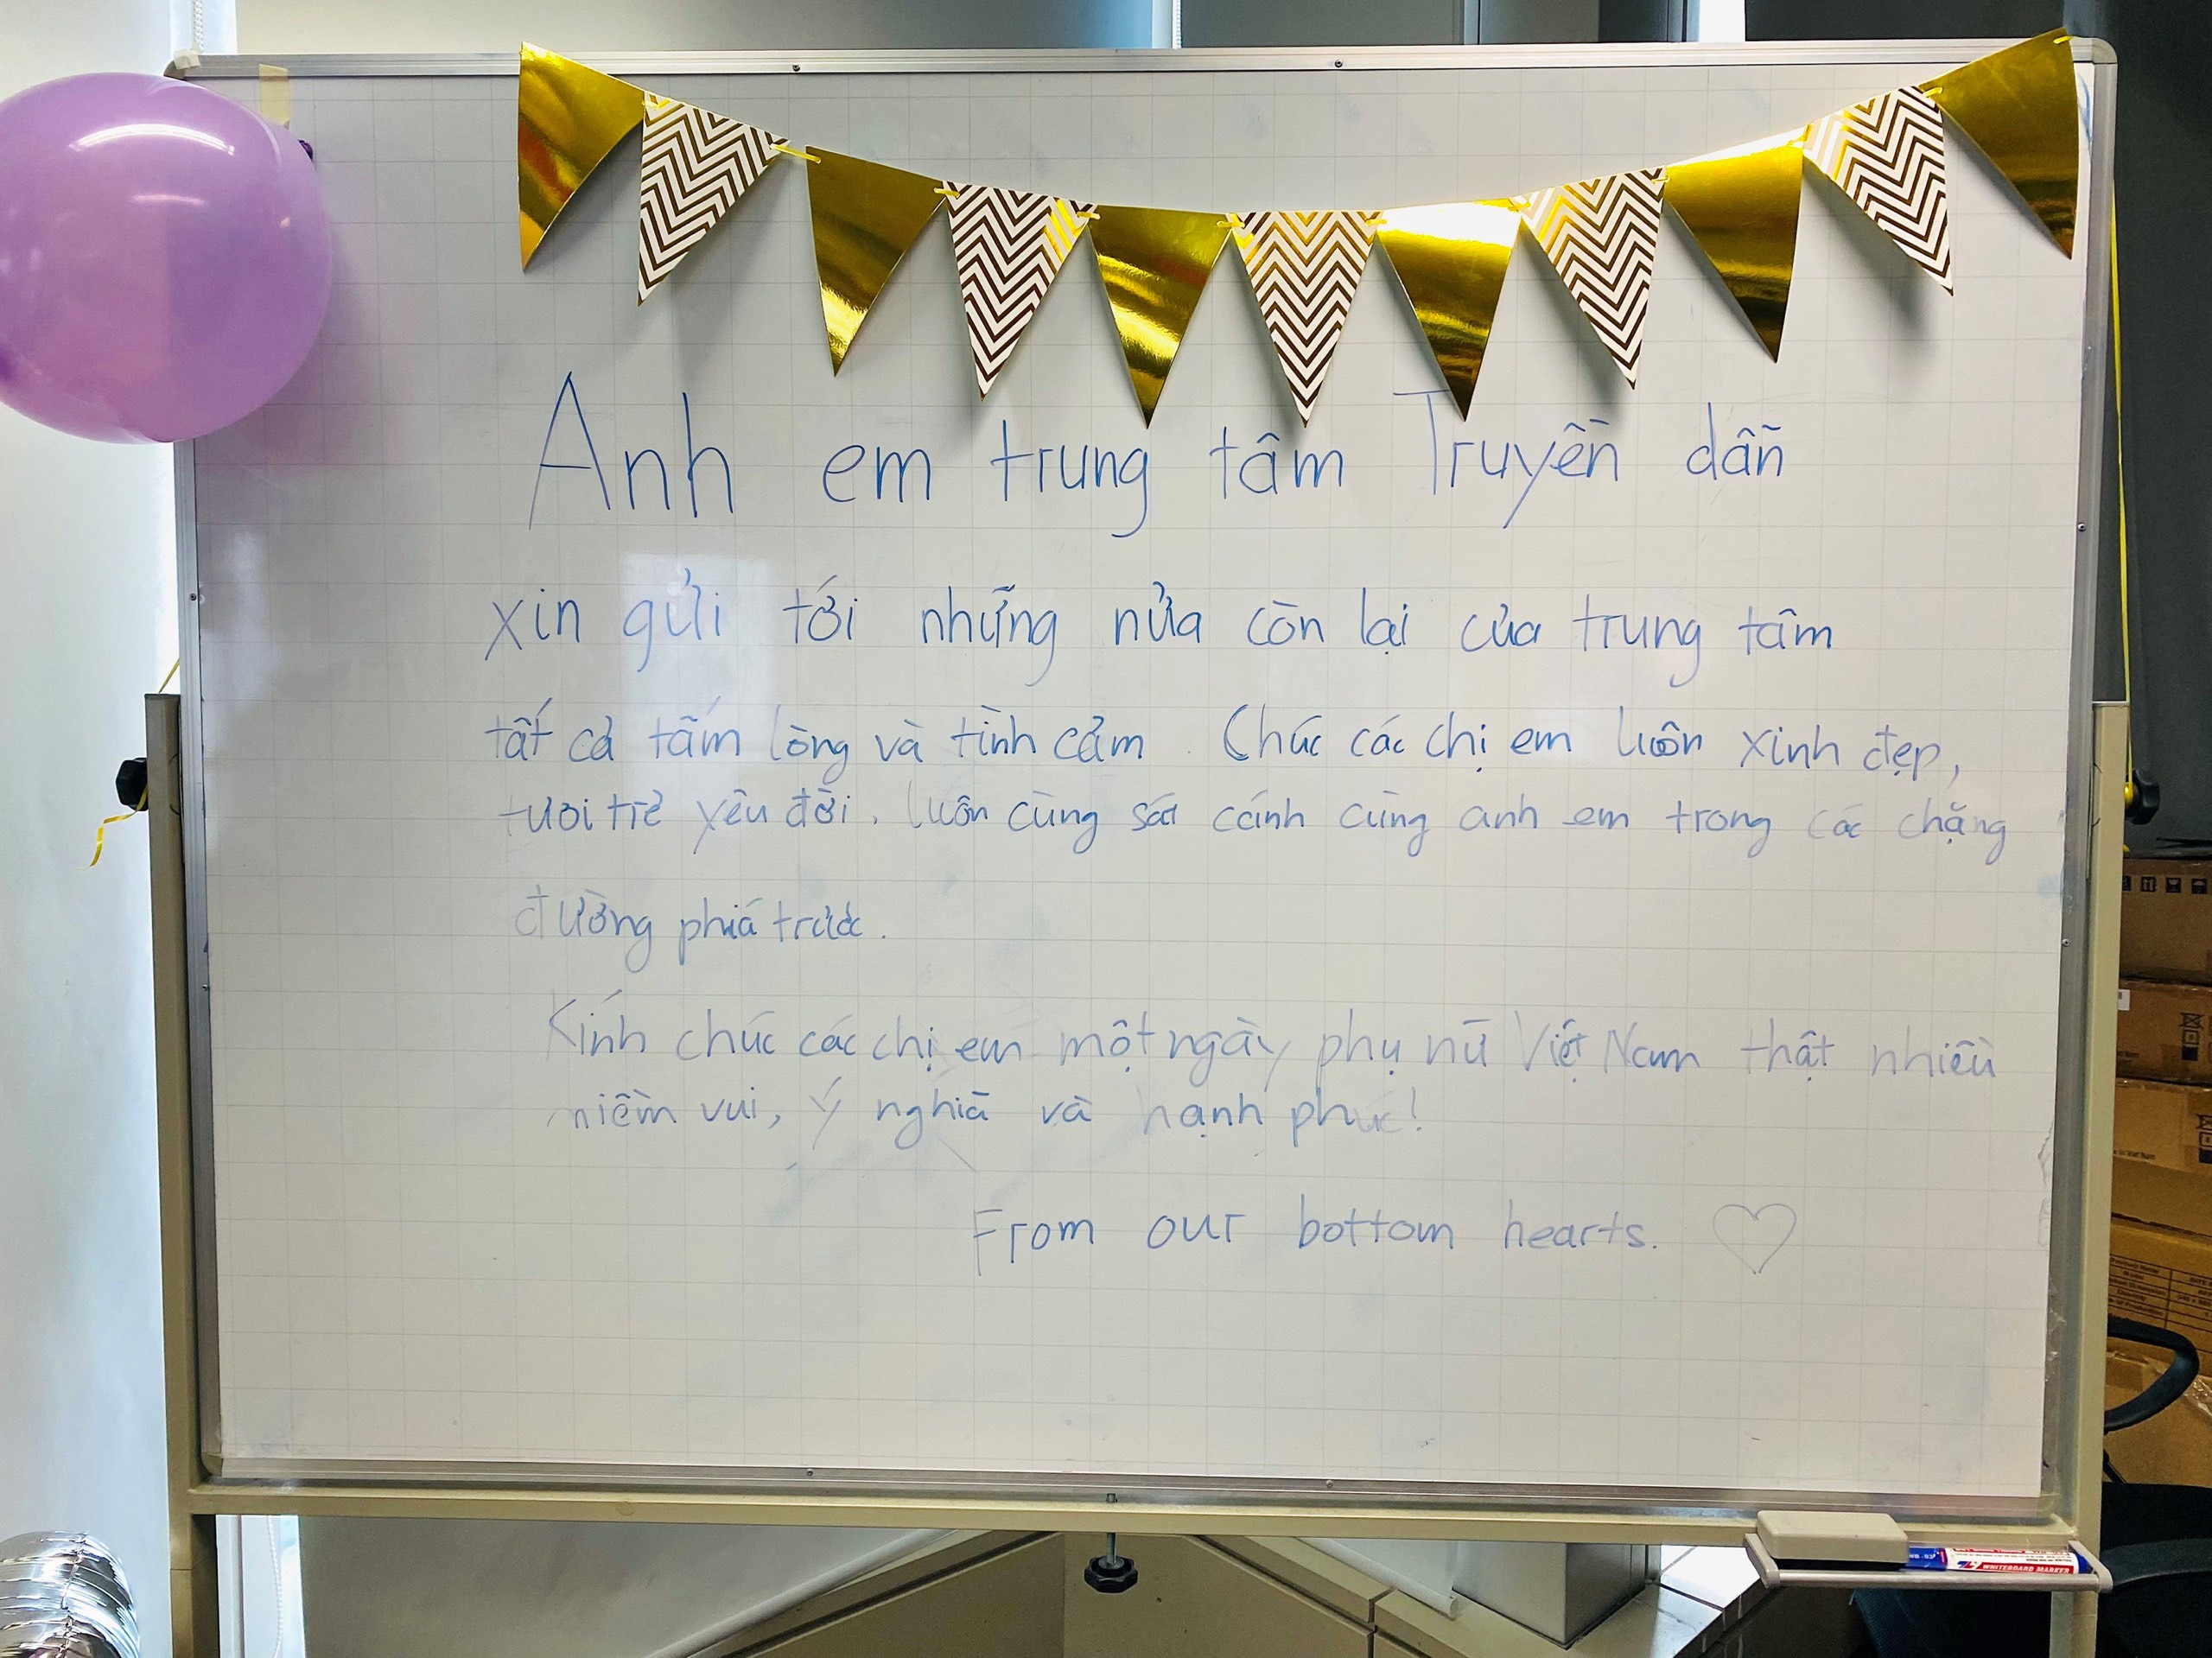 Anh em trung tâm Truyền dẫn
xin gửi tới những nửa còn lại của trung tâm
tất cả tấm lòng và tình cảm. Chúc các chị em luôn xinh đẹp,
tươi trẻ yêu đời. luôn cùng sát cánh cùng anh em trong các chặng
đường phía trước.
Kính chúc các chị em một ngày phụ nữ Việt Nam thật nhiều
niềm vui, ý nghĩa và hạnh phúc!
From our bottom hearts.
WHITEBOARD MARKER